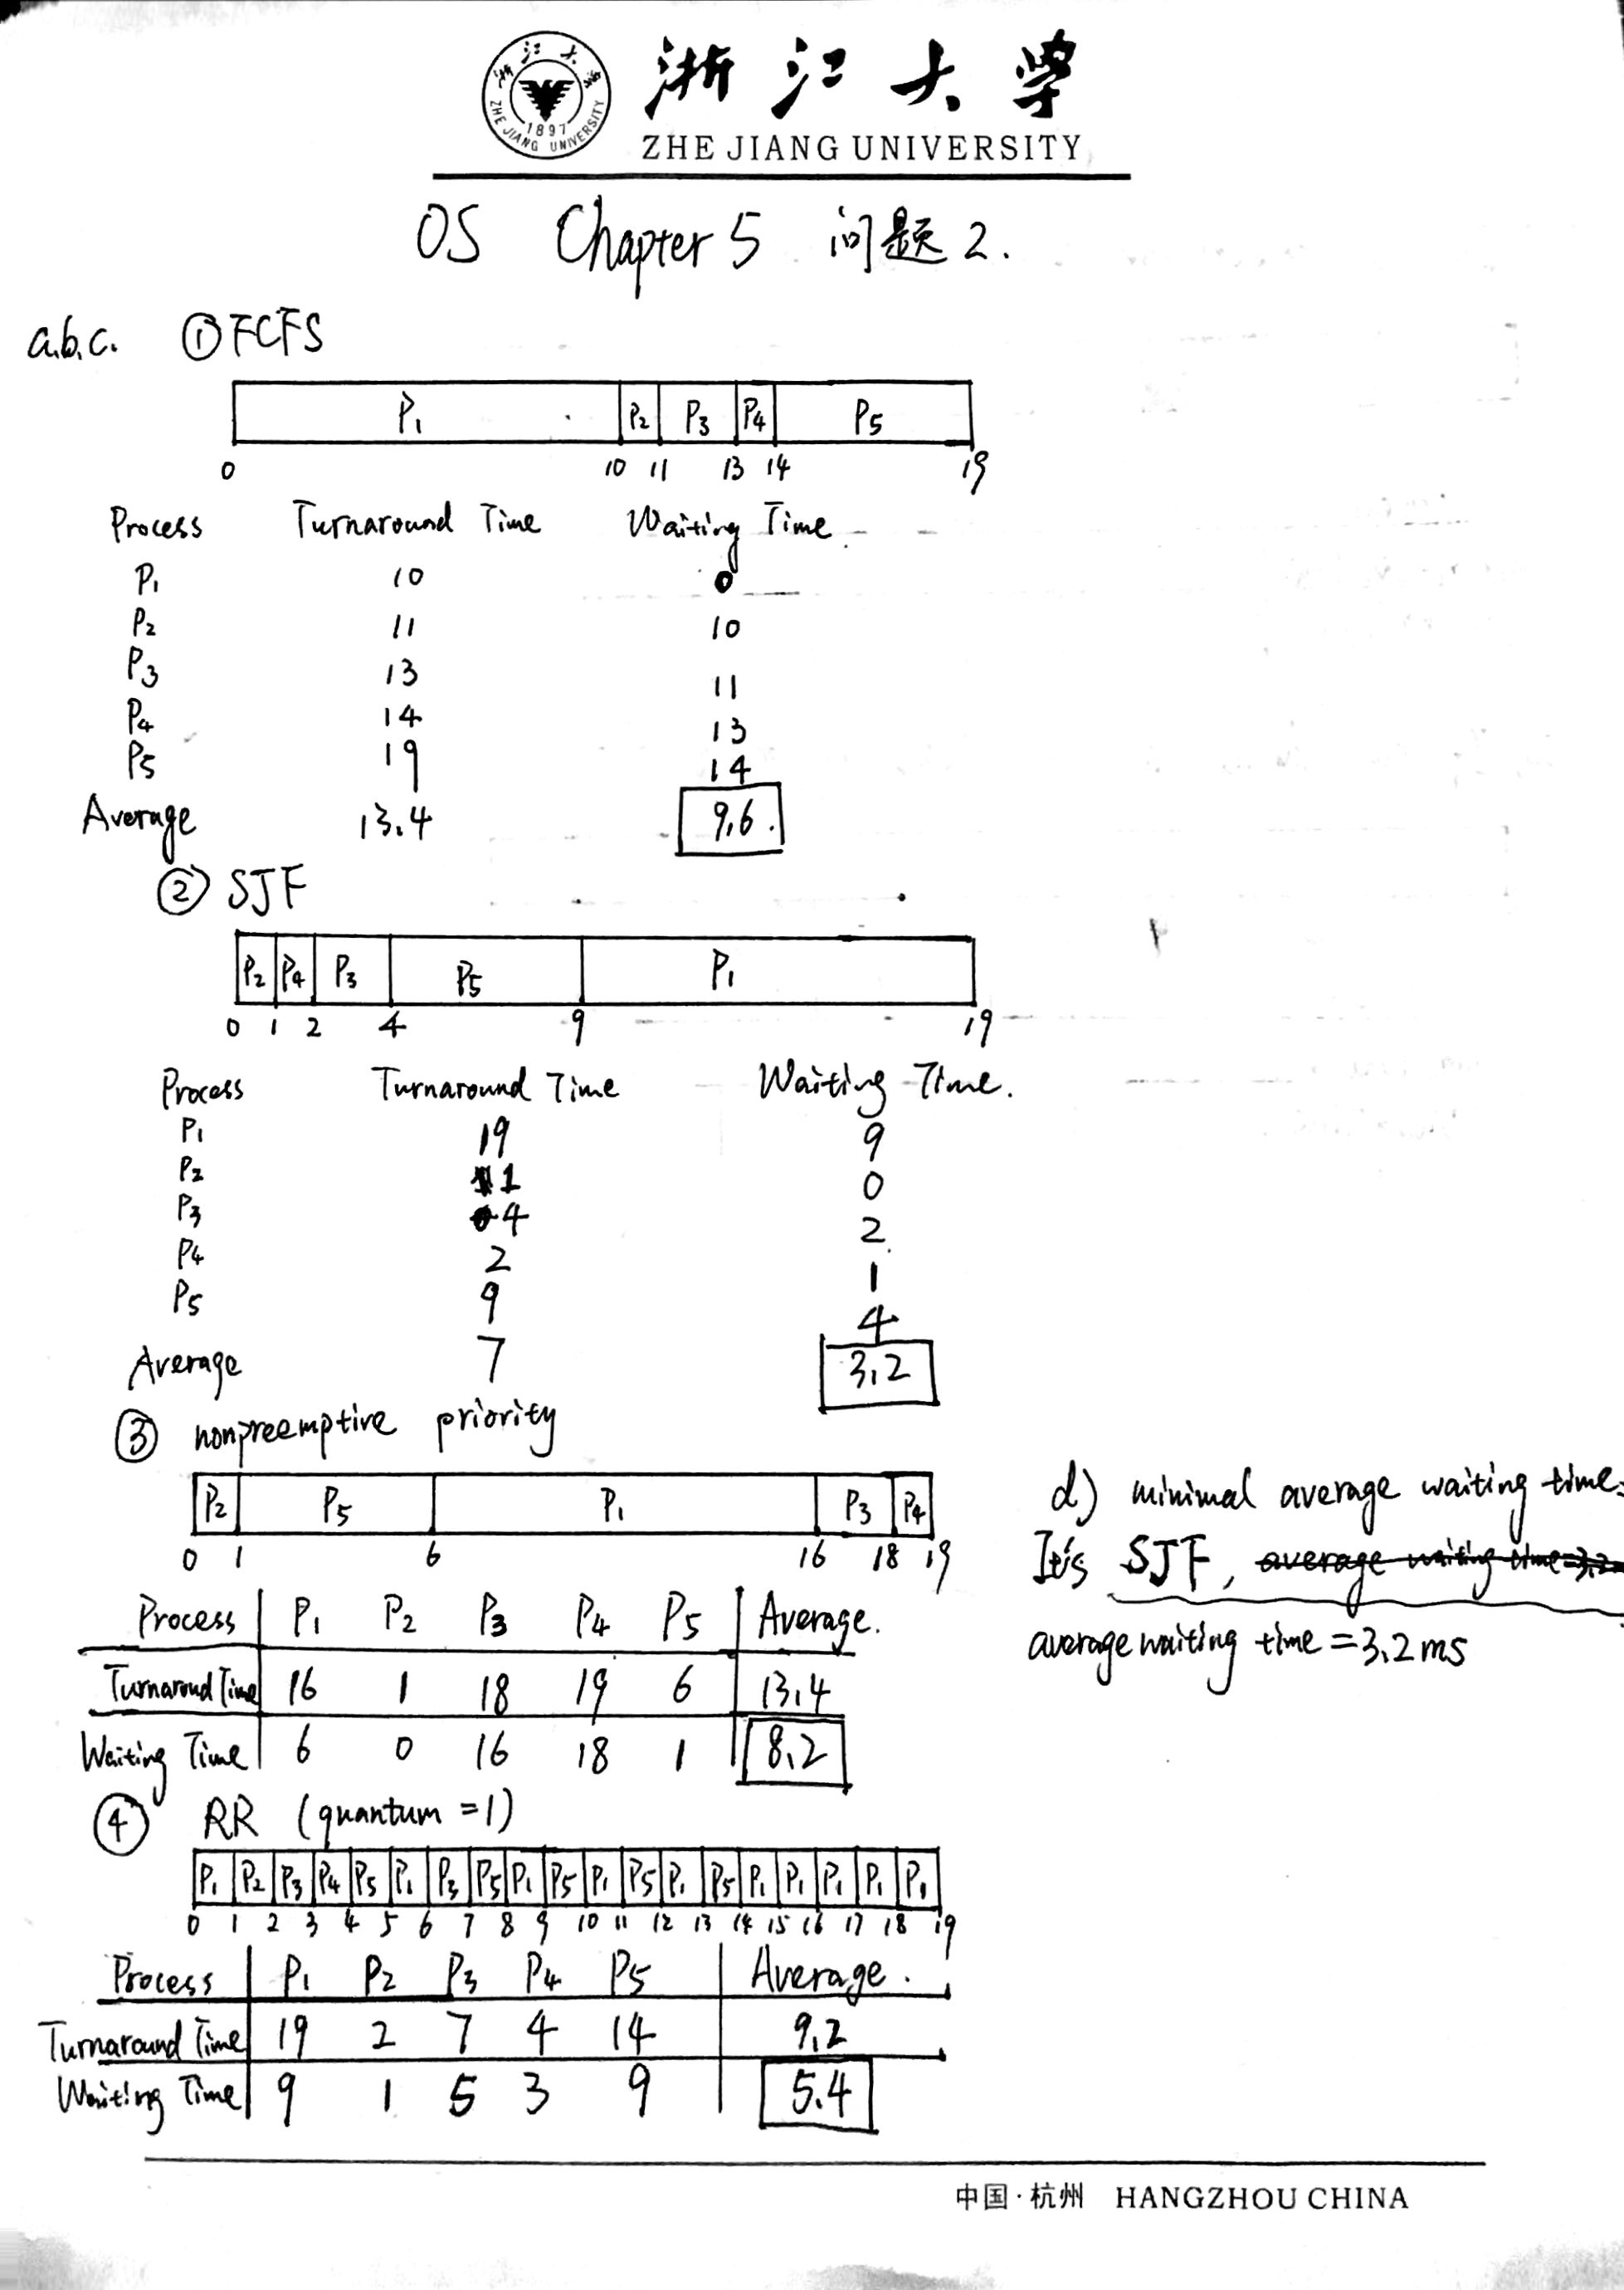 浙江大学
ZHE JIANG UNIVERSITY
1897
浙江大学
ZHE JIANG UNIVERSITY
OS Chapter 5 问题2.
a.b.c. ①FCFS
P1 P2 P3 P4 P5
0 10 11 13 14 19
Process Turnaround Time Waiting Time
P1 10 0
P2 11 10
P3 13 11
P4 14 13
P5 19 14
Average 13.4 9.6.
② SJF
P2 P4 P3 P5 P1
0 1 2 4 9 19
Process Turnaround Time Waiting Time.
P1 19 9
P2 1 0
P3 4 2
P4 2 1
P5 9 4
Average 7 3.2
③ nonpreemptive priority
P2 P5 P1 P3 P4
0 1 6 16 18 19
Process P1 P2 P3 P4 P5 Average.
Turnaround Time 16 1 18 19 6 13.4
Waiting Time 6 0 16 18 1 8.2
④ RR (quantum =1)
P1 P2 P3 P4 P5 P1 P3 P5 P1 P5 P1 P5 P1 P5 P1 P1 P1 P1 P1
0 1 2 3 4 5 6 7 8 9 10 11 12 13 14 15 16 17 18 19
Process P1 P2 P3 P4 P5 Average.
Turnaround Time 19 2 7 4 14 9.2
Waiting Time 9 1 5 3 9 5.4
d) minimal average waiting time:
It's SJF, average waiting time=3.2
average waiting time =3.2ms
中国·杭州 HANGZHOU CHINA